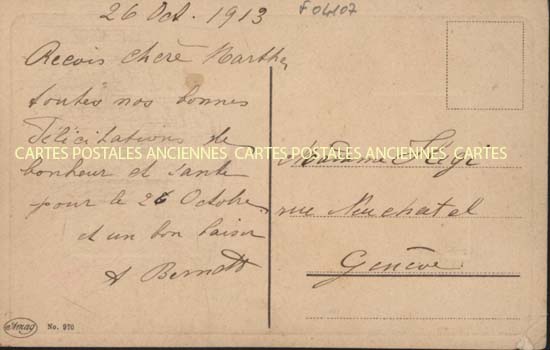 26 Oct. 1913
F04107
Recois chère Marthe
toutes nos bonnes
Félicitations de
bonheur et sante
pour le 26 Octobre
et un bon baiser
A Bernath
Madame Hegi
rue Neuchatel
Genève
CARTES POSTALES ANCIENNES CARTES POSTALES ANCIENNES CARTES
Amag
No. 970